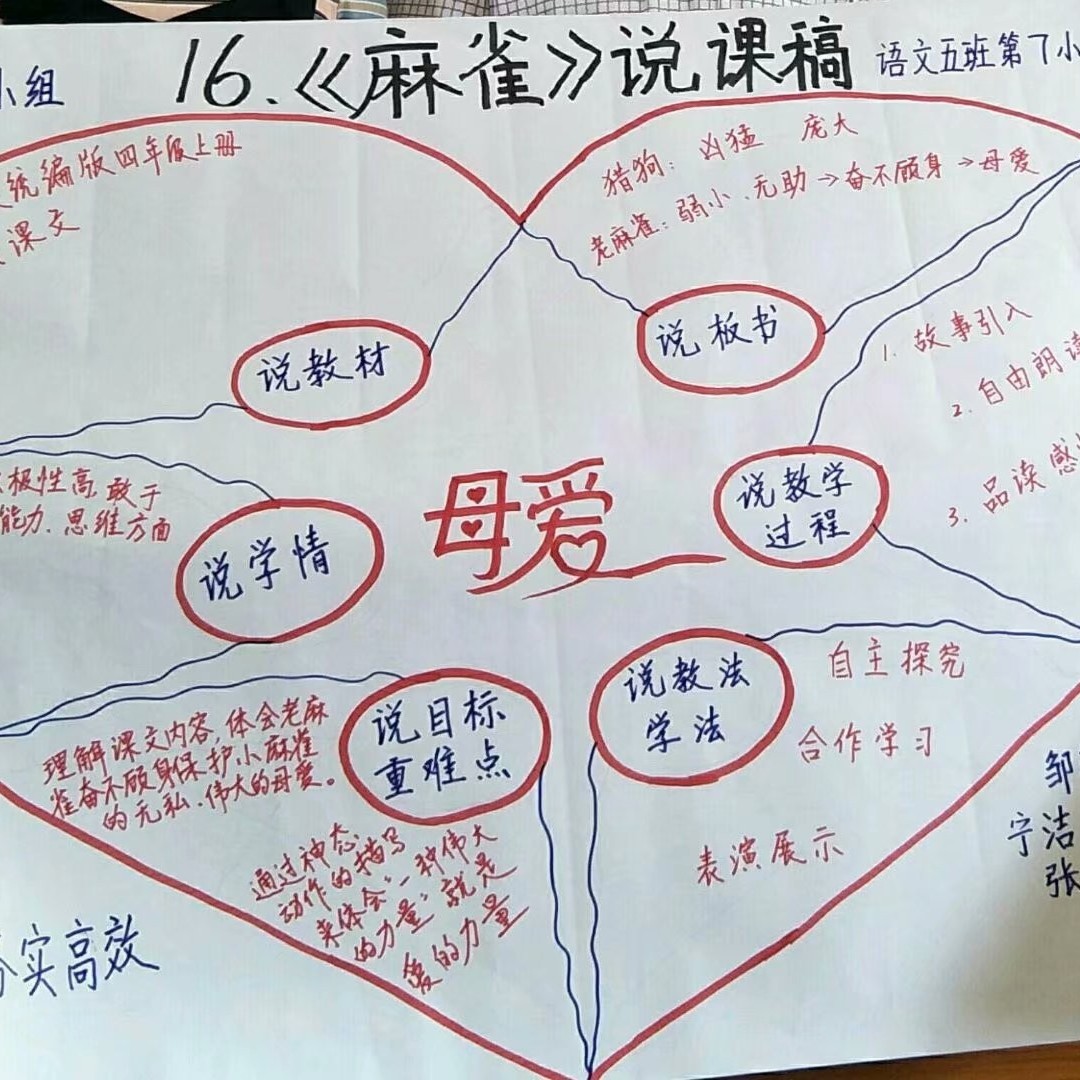 16.《麻雀》说课稿
语文五班第7小
小组
统编版四年级上册
课文
猎狗：凶猛 庞大
老麻雀：弱小、无助→奋不顾身→母爱
说教材
说板书
1. 故事引入
2. 自由朗读
3. 品读感
极性高,敢于
能力、思维方面
说学情
母爱
说教学
过程
说目标
重难点
理解课文内容,体会老麻
雀奋不顾身保护小麻雀
的无私、伟大的母爱。
通过神态、
动作的描写
来体会“一种伟大
的力量”就是
爱的力量
说教法
学法
自主探究
合作学习
表演展示
邹
宁洁
张
实高效